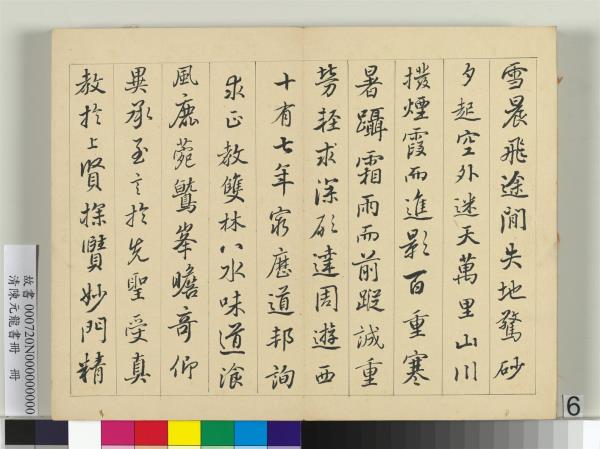 雪晨飛途閒失地驚砂
夕起空外迷天萬里山川
撥煙霞而進影百重寒
暑躡霜雨而前蹤誠重
勞輕求深願達周遊西
十有七年窮歷道邦詢
求正教雙林八水味道湌
風鹿菀鷲峯瞻奇仰
異承至言於先聖受真
教於上賢探賾妙門精
故書 000720N000000000
清陳元龍書冊 冊
6